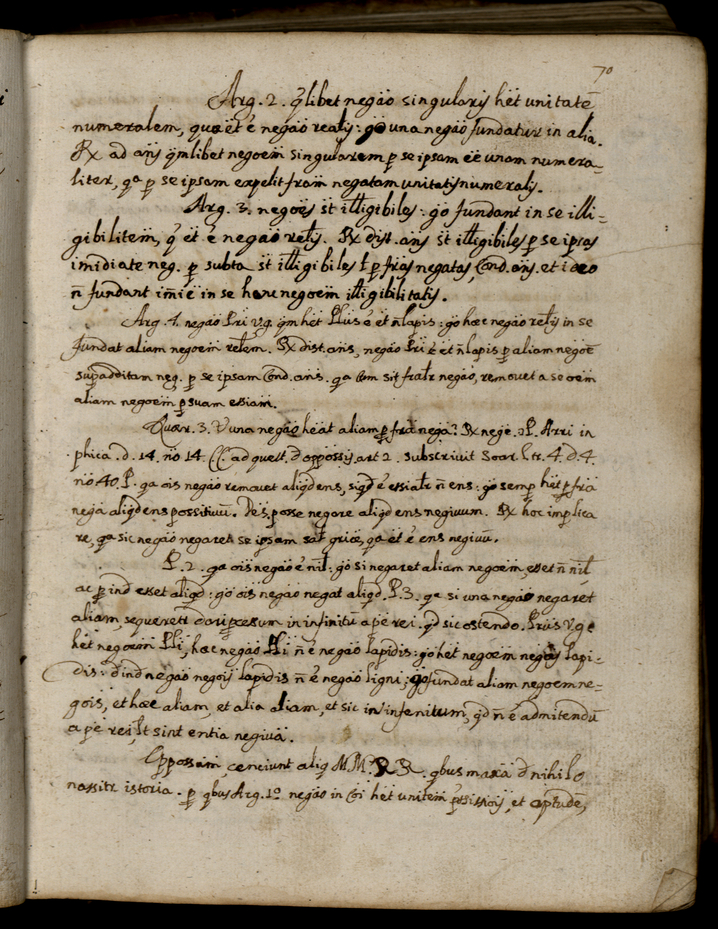 70
Arg. 2. q̃libet negäo singularis hët unitatē
numeralem, quæ ët ë negäo realis: gö una negäo fundatur in alia.
Rx ad añs q̃mlibet negoëm singularem p se ipsam ëë unam numera-
liter, qa p se ipsam expelit främ negatam unitatis numeralis.
Arg. 3. negoës st̃ illigibiles: gö fundant in se illi-
gibilitëm, q̃ ët ë negäo relis. Rx dist. añs st̃ illigibiles p se ipsas
imdiate neg. p subta st̃ illigibiles l p fräs negatas, Cond. añs. et ideo
ñ fundant imië in se hanc negoëm illigibilitatis.
Arg. 4. negäo Pri v.g. q̃m hët Plus ë ët ñ lapis: gö hæc negäo relis in se
fundat aliam negoëm relem. Rx dist. añs, negäo Pri ë ët ñ lapis p aliam negoē
supadditam neg. p se ipsam Cond. añs. qa cum sit fralr negäo, removet a se oëm
aliam negoëm p suam essiam.
Quær. 3. V una negäo heät aliam p frä negä? Rx nege. P. Arri in
phica. d. 14. ño 14. ad quest. d oppossis art 2. subscrivit Soar. 4. d. 4.
ño 40. P. qa ois negäo removet aliqd ens, siqd ë essialr ñ ens: gö semp hët p frä
negä aliqd ens possitivu. Des. posse negare aliqd ens negivum. Rx hoc implica
re, qa sic negäo negaret se ipsam qa ët ë ens negivu.
P. 2. qa ois negäo ë nil: gö si negaret aliam negoëm, esset ñ nil
ac p ind esset aliqd: gö ois negäo negat aliqd. P. 3. qa si una negäo negaret
aliam, sequeretr dari pcessum in infinitu a pë rei. qd sic ostendo. Prius v.g.
hët negoëm Pli, hæc negäo Pli ñ ë negäo lapidis: gö hët negoëm negois lapi-
dis: d ind negäo negois lapidis ñ ë negäo ligni; gö fundat aliam negoëm ne-
gois, et hæc aliam, et alia aliam, et sic in infinitum, qd ñ ë admitendu
a pë rei, lt sint entia negiva.
Oppossam, cenciunt aliq MM. RR. qbus maxä d nihilo
nassitr istoria. p qbus Arg. 1º negäo in Coi hët unitem et aptudë,